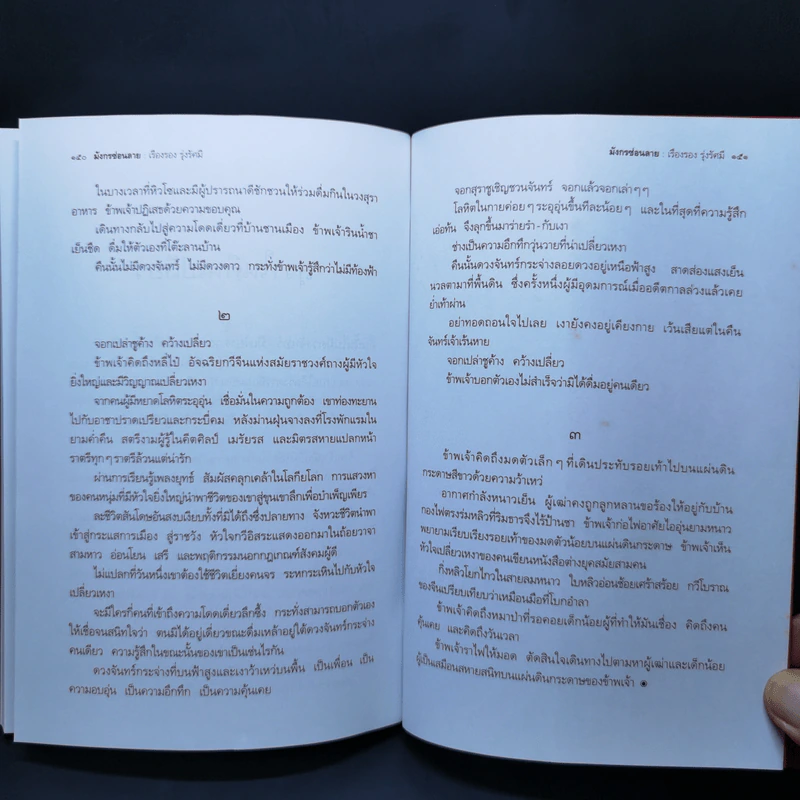 ๑๕๐ มังกรซ่อนลาย : เรืองรอง รุ่งรัศมี
ในบางเวลาที่หิวโซและมีผู้ปรารถนาดีชักชวนให้ร่วมดื่มกินในวงสุรา
อาหาร ข้าพเจ้าปฏิเสธด้วยความขอบคุณ
เดินทางกลับไปสู่ความโดดเดี่ยวที่บ้านชานเมือง ข้าพเจ้ารินน้ำชา
เย็นชืด ดื่มให้ตัวเองที่โต๊ะลานบ้าน
คืนนั้นไม่มีดวงจันทร์ ไม่มีดวงดาว กระทั่งข้าพเจ้ารู้สึกว่าไม่มีท้องฟ้า
๒
จอกเปล่าชูค้าง คว้างเปลี่ยว
ข้าพเจ้าคิดถึงหลี่ไป๋ อัจฉริยกวีจีนแห่งสมัยราชวงศ์ถางผู้มีหัวใจ
ยิ่งใหญ่และมีวิญญาณเปลี่ยวเหงา
จากคนผู้มีหยาดโลหิตระอุอุ่น เชื่อมั่นในความถูกต้อง เขาท่องทะยาน
ไปกับอาชาปราดเปรียวและกระบี่คม หลังม่านฝุ่นจางลงที่โรงพักแรมใน
ยามค่ำคืน สตรีงามผู้รู้ในคีตศิลป์ เมรัยรส และมิตรสหายแปลกหน้า
ราตรีทุกๆ ราตรีล้วนแต่น่ารัก
ผ่านการเรียนรู้เพลงยุทธ์ สัมผัสคลุกเคล้าในโลกียโลก การแสวงหา
ของคนหนุ่มที่มีหัวใจยิ่งใหญ่นำพาชีวิตของเขาสู่ขุนเขาลึกเพื่อบำเพ็ญเพียร
ละชีวิตสันโดษอันสงบเงียบทั้งที่มิได้ถึงซึ่งปลายทาง จังหวะชีวิตนำพา
เข้าสู่กระแสการเมือง สู่ราชวัง หัวใจกวีอิสระแสดงออกมาในถ้อยวาจา
สามหาว อ่อนโยน เสรี และพฤติกรรมนอกกฎเกณฑ์สังคมผู้ดี
ไม่แปลกที่วันหนึ่งเขาต้องใช้ชีวิตเยี่ยงคนจร ระหกระเหินไปกับหัวใจ
เปลี่ยวเหงา
จะมีใครกี่คนที่เข้าถึงความโดดเดี่ยวลึกซึ้ง กระทั่งสามารถบอกตัวเอง
ให้เชื่อจนสนิทใจว่า ตนมิได้อยู่เดี่ยวขณะดื่มเหล้าอยู่ใต้ดวงจันทร์กระจ่าง
คนเดียว ความรู้สึกในขณะนั้นของเขาเป็นเช่นไรกัน
ดวงจันทร์กระจ่างที่บนฟ้าสูงและเงาว้าเหว่บนพื้น เป็นเพื่อน เป็น
ความอบอุ่น เป็นความอึกทึก เป็นความคุ้นเคย
มังกรซ่อนลาย : เรืองรอง รุ่งรัศมี ๑๕๑
จอกสุราชูเชิญชวนจันทร์ จอกแล้วจอกเล่าๆๆ
โลหิตในกายค่อยๆ ระอุอุ่นขึ้นทีละน้อยๆ และในที่สุดที่ความรู้สึก
เอ่อท้น จึงลุกขึ้นมาร่ายรำ-กับเงา
ช่างเป็นความอึกทึกวุ่นวายที่น่าเปลี่ยวเหงา
คืนนั้นดวงจันทร์กระจ่างลอยดวงอยู่เหนือฟ้าสูง สาดส่องแสงเย็น
นวลตามาที่พื้นดิน ซึ่งครั้งหนึ่งผู้มีอุดมการณ์เมื่ออดีตกาลล่วงแล้วเคย
ย่ำเท้าผ่าน
อย่าทอดถอนใจไปเลย เงายังคงอยู่เคียงกาย เว้นเสียแต่ในคืน
จันทร์เจ้าเร้นหาย
จอกเปล่าชูค้าง คว้างเปลี่ยว
ข้าพเจ้าบอกตัวเองไม่สำเร็จว่ามิได้ดื่มอยู่คนเดียว
๓
ข้าพเจ้าคิดถึงมดตัวเล็กๆ ที่เดินประทับรอยเท้าไปบนแผ่นดิน
กระดาษสีขาวด้วยความว้าเหว่
อากาศกำลังหนาวเย็น ผู้เฒ่าคงถูกลูกหลานขอร้องให้อยู่กับบ้าน
กองไฟตรงร่มหลิวที่ริมธารจึงไร้ป้านชา ข้าพเจ้าก่อไฟอาศัยไออุ่นยามหนาว
พยายามเรียบเรียงรอยเท้าของมดตัวน้อยบนแผ่นดินกระดาษ ข้าพเจ้าเห็น
หัวใจเปลี่ยวเหงาของคนเขียนหนังสือต่างยุคสมัยสามคน
กิ่งหลิวโยกไกวในสายลมหนาว ใบหลิวอ่อนช้อยเศร้าสร้อย กวีโบราณ
ของจีนเปรียบเทียบว่าเหมือนมือที่โบกอำลา
ข้าพเจ้าคิดถึงหมาป่าที่รอคอยเด็กน้อยผู้ที่ทำให้มันเชื่อง คิดถึงคน
คุ้นเคย และคิดถึงวันเวลา
ข้าพเจ้าราไฟให้มอด ตัดสินใจเดินทางไปตามหาผู้เฒ่าและเด็กน้อย
ผู้เป็นเสมือนสหายสนิทบนแผ่นดินกระดาษของข้าพเจ้า ๏